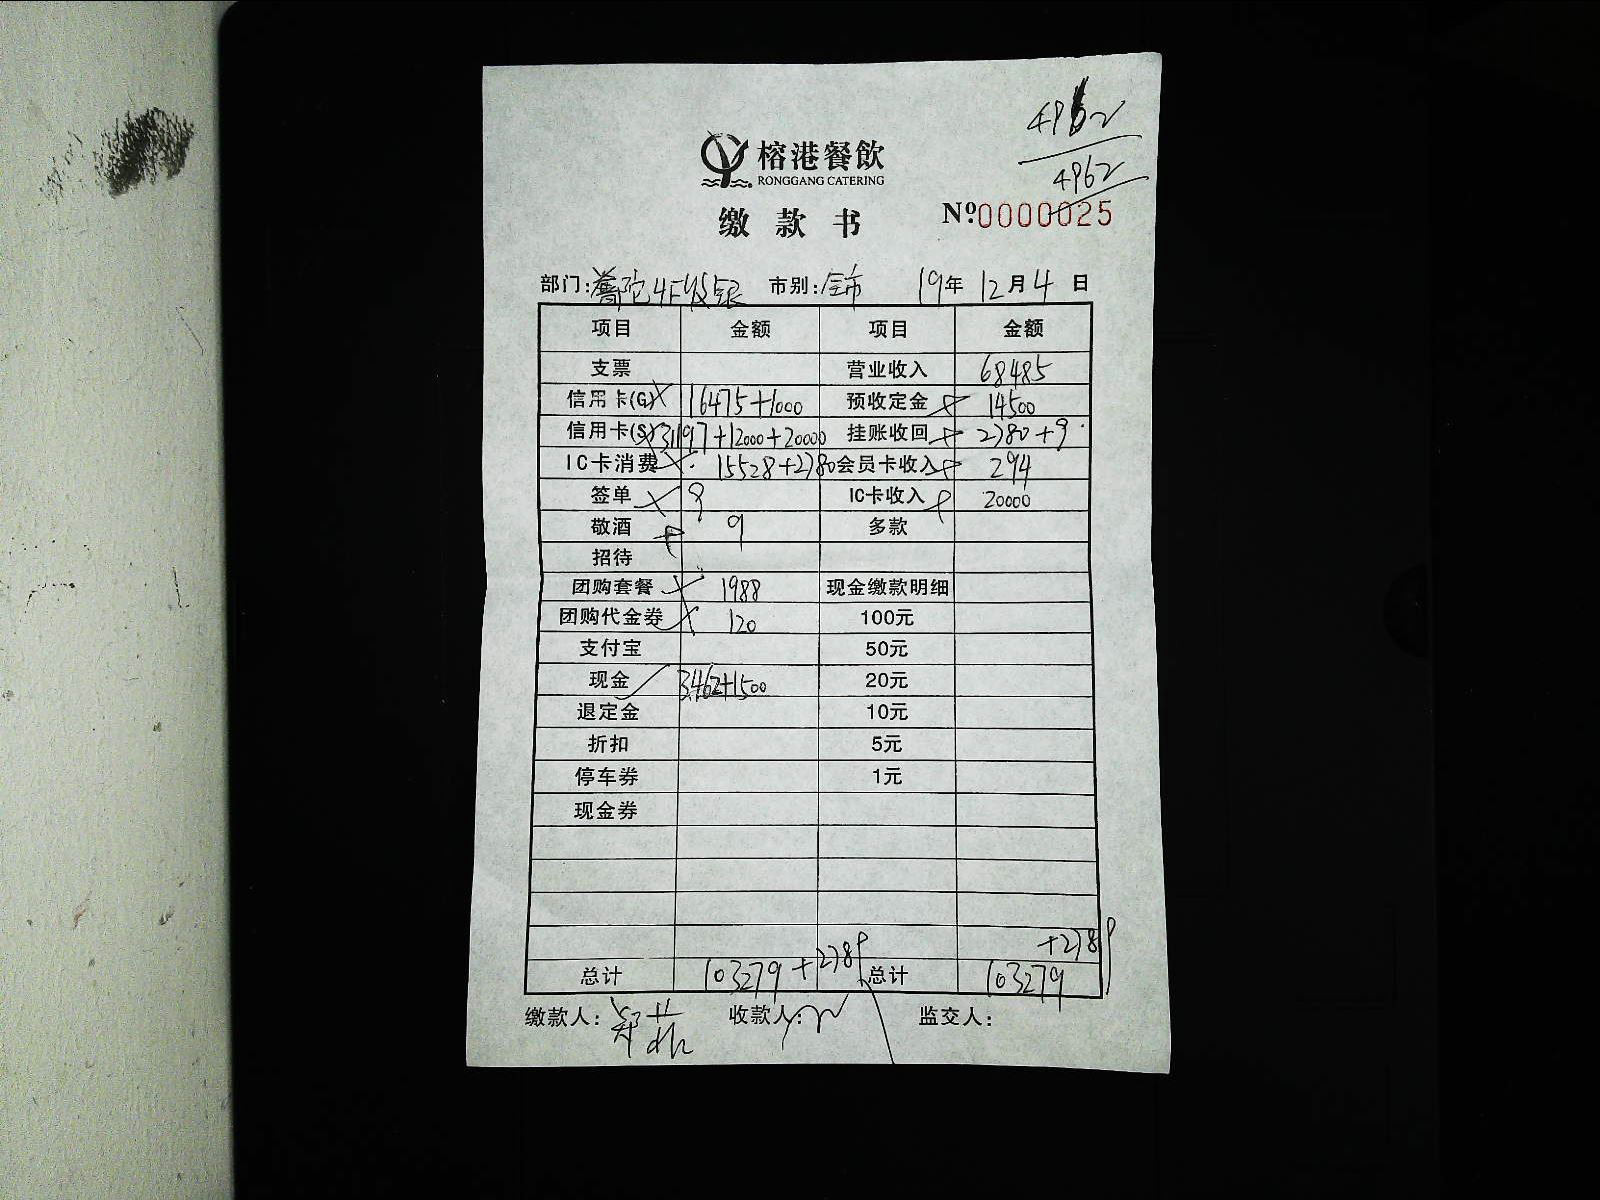 4962
4962
榕港餐飲
RONGGANG CATERING
缴款书
Nº0000025
部门:普陀4F收银 市别:全市 19年12月4日
项目 金额 项目 金额
支票 营业收入 68485
信用卡(G) 16475+1000 预收定金 14500
信用卡(S) 31197+12000+20000 挂账收回 2780+9
IC卡消费 15528+2780 会员卡收入 294
签单 9 IC卡收入 20000
敬酒 9 多款
招待
团购套餐 1988 现金缴款明细
团购代金券 120 100元
支付宝 50元
现金 3462+1500 20元
退定金 10元
折扣 5元
停车券 1元
现金券
+2789
总计 103279+2789 总计 103279
缴款人: 收款人: 监交人: